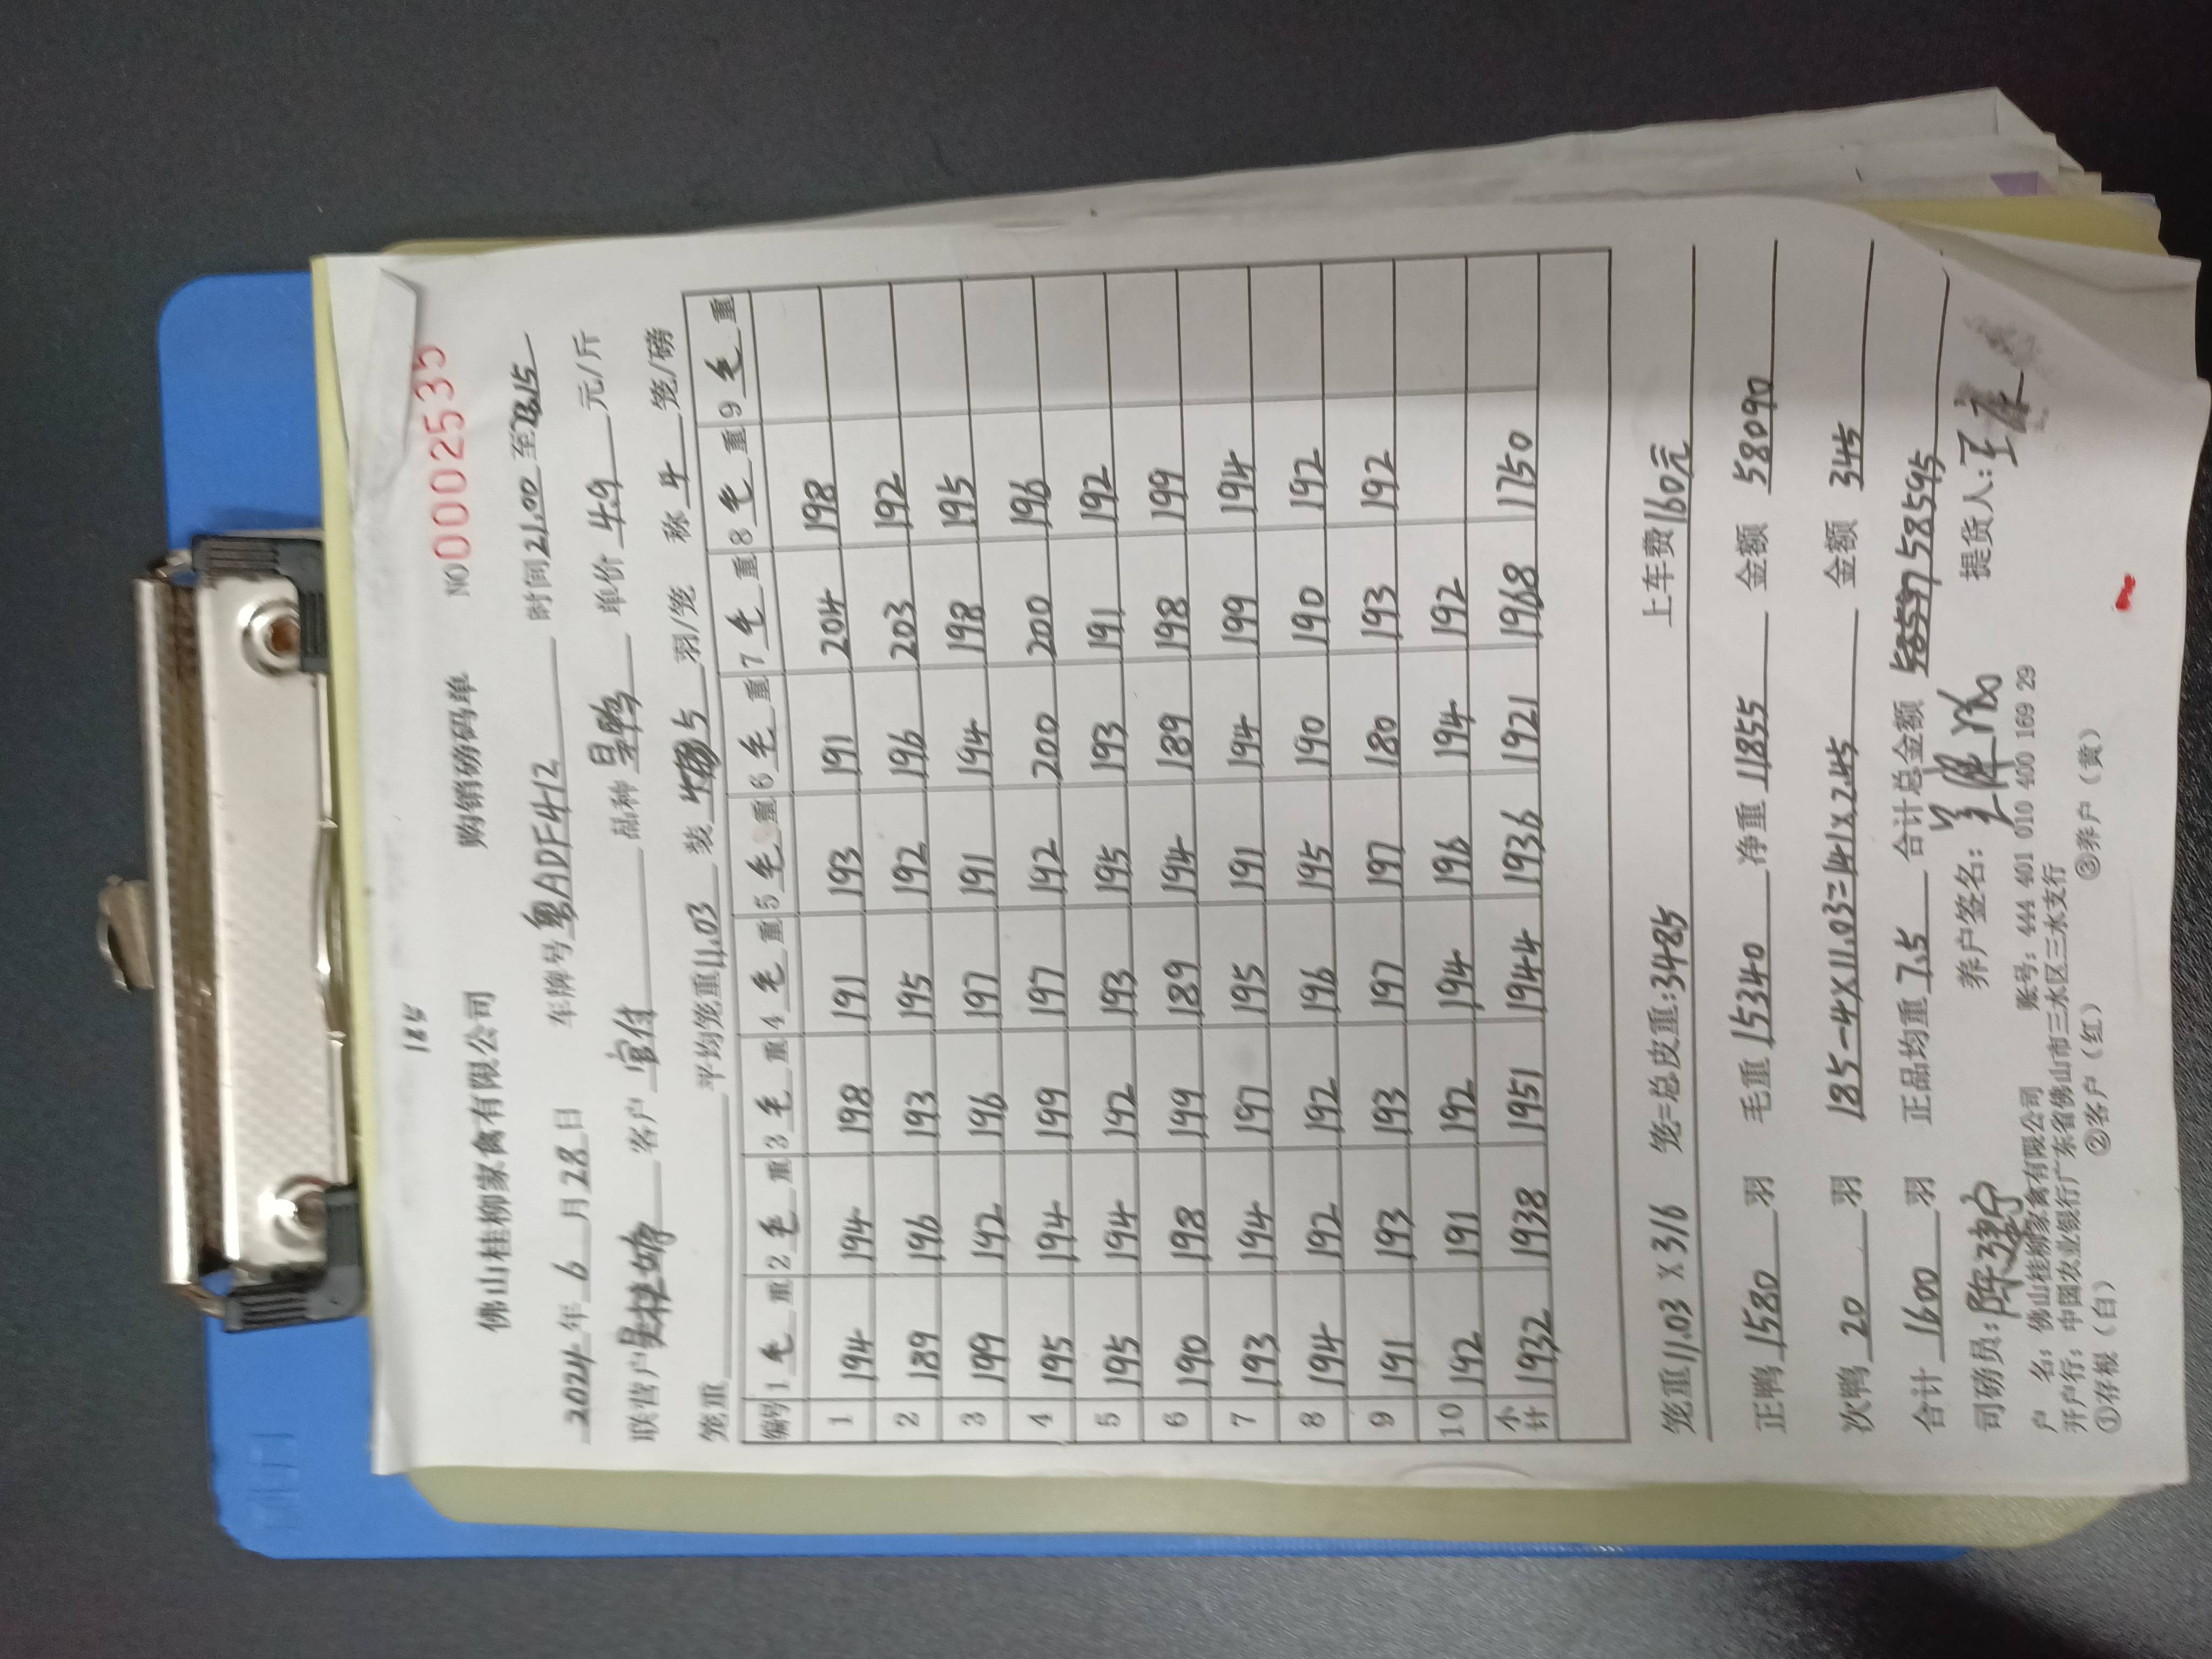 185
佛山桂柳家禽有限公司 购销磅码单 NO 0002535
2024年6月28日 车牌号 粤ADF412 时间21.00至23.15
联营户 客户 官付 品种 单价 4.9 元/斤
笼重 平均笼重11.03 装 5 羽/笼 称 4 笼/磅
编号 1 毛 重 2 毛 重 3 毛 重 4 毛 重 5 毛 重 6 毛 重 7 毛 重 8 毛 重 9 毛 重
1 194 194 198 191 193 191 204 198
2 189 196 193 195 192 196 203 192
3 199 192 196 197 191 194 198 195
4 195 194 199 197 192 200 200 196
5 195 194 192 193 195 193 191 192
6 190 198 199 189 194 189 198 199
7 193 194 197 195 191 194 199 194
8 194 192 192 196 195 190 190 192
9 191 193 193 197 197 180 193 192
10 192 191 192 194 196 194 192
小计 1932 1938 1951 1944 1936 1921 1968 1750
笼重11.03 X 316 笼=总皮重:3485 上车费160元
正鸭 1580 羽 毛重 15340 净重 11855 金额 58090
次鸭 20 羽 185-4X11.03=141X2.45 金额 345
合计 1600 羽 正品均重 7.5 合计总金额 58595
司磅员: 养户签名: 提货人:
户 名: 佛山桂柳家禽有限公司 账号: 444 401 010 400 169 29
开户行: 中国农业银行广东省佛山市三水区三水支行
①存根（白） ②客户（红） ③养户（黄）